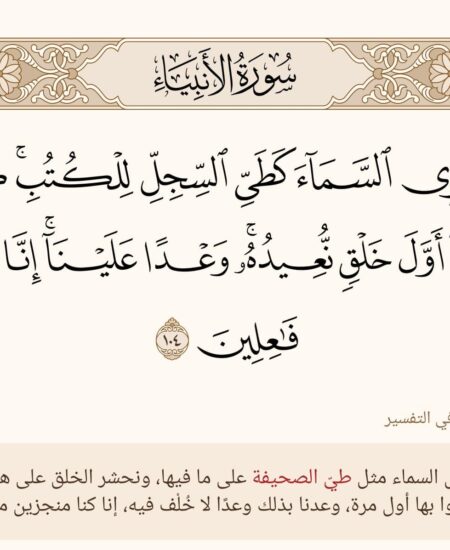 سُورَةُ الأَنبِيَاءِ
ٱلسَّمَآءَ كَطَيِّ ٱلسِّجِلِّ لِلۡكُتُبِۚ
أَوَّلَ خَلۡقٖ نُّعِيدُهُۥۚ وَعۡدًا عَلَيۡنَآۚ إِنَّا
فَٰعِلِينَ ١٠٤
في التفسير
السماء مثل طيّ الصحيفة على ما فيها، ونحشر الخلق على
بها أول مرة، وعدنا بذلك وعدًا لا خُلْف فيه، إنا كنا منجزين